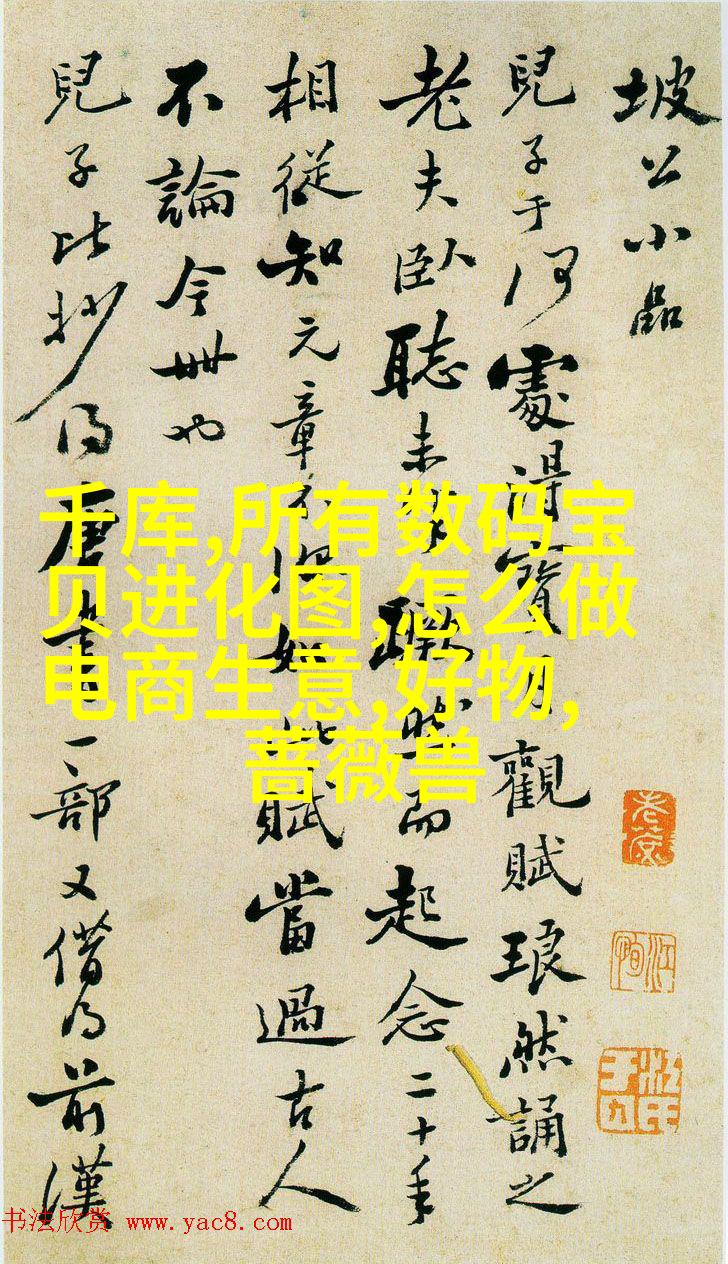 坡公小品
兒子于何處得寶月觀賦琅然誦之
老夫臥聽未半躍然而起念二十年
相從知元章如此賦當過古人
不論今卋也
兒子比抄得唐書一部又借得前漢
千库,所有数码宝
贝进化图,怎么做
电商生意,好物,
蔷薇兽
书法欣赏 www.yac8.com